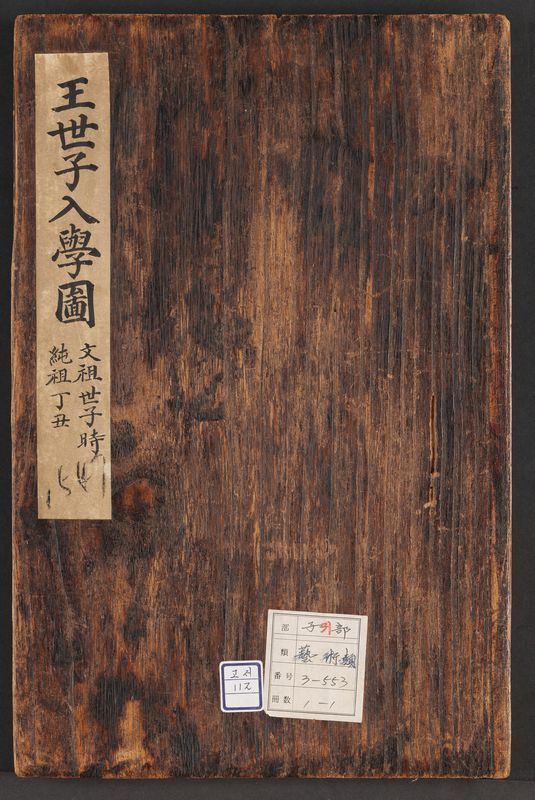 王世子入學圖
文祖世子時
純祖丁丑
部 子部
類 藝術類
番号 3-553
冊数 1-1
고서